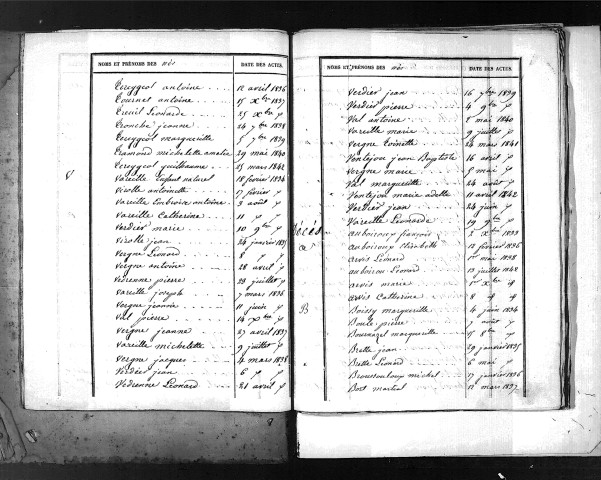 NOMS ET PRÉNOMS DES nés
DATE DES ACTES.
Terygeol antoine 12 avril 1836
Tournet antoine 15 Xbre 1837
Treuil Léonarde 25 Xbre
Tronche jeanne 24 7bre 1838
Terygeol marguerite 5 7bre 1839
Tramond michelette amelie 29 mai 1840
Terygeol guilhaume 25 mars 1842
V
Vareille Enfant naturel 18 fevrier 1834
Virolle antoinette 17 fevrier
Vareille Embroise antoine 3 août
Vareille Catherine 11
Verdier marie 10 9bre
Virolle jean 24 janvier 1835
Vergne Léonard 8
Vergne antoine 28 avril
Vedrenne pierre 23 juillet
Vareille joseph 7 mars 1836
Vergne jeanne 11 juin
Val pierre 14 Xbre
Vergne jeanne 27 avril 1837
Vareille michelette 9 juillet
Vergne jacques 4 mars 1838
Verdier jean 6
Vedrenne Léonard 21 avril
NOMS ET PRÉNOMS DES nés
DATE DES ACTES.
Verdier jean 16 7bre 1839
Verdier pierre 4 9bre
Val antoine 1840
Vareille marie 9 juillet
Vergne Toinette 24 mars 1841
Ventejou jean Baptiste 16 avril
Vergne marie 5 mai
Val marguerite 24 août
Ventejou marie adelle 10 avril 1842
Verdier jean 24 juin
Vareille Léonarde 19 9bre
Décès
auboiroux françois 2 Xbre 1833
a
auboiroux Elisabeth 12 fevrier 1836
arvis Léonard 1er mai 1838
auboirou Léonard 13 juillet 1848
arvis marie 1er Xbre
arvis Catherine 8
B
Boissy marguerite 4 juin 1834
Boule pierre 7 août
Bournazel marguerite
Brette jean 29 janvier 1835
Brette Léonard 6 mai
Broussouloux michel 17 janvier 1836
Bost martial 12 mars 1837